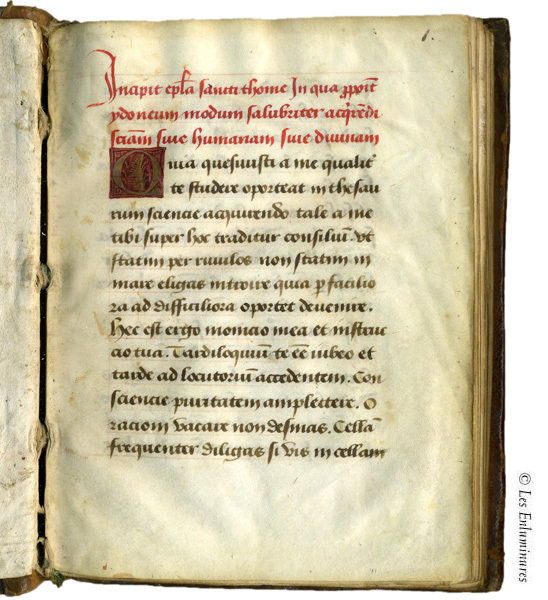 1.
Incipit epl̃a sancti thome In qua p̱poĩt
ydoneum modum salubriter acq̃rẽdi
sciãm siue humanam siue diuinam
Quia quesiuisti a me qualit̃
te studere oporteat in thesau
rum sciencie acquirendo tale a me
tibi super hoc traditur consiliũ. Vt
statim per riuulos non statim in
mare eligas introire quia p̱ facilio
ra ad difficiliora oportet deuenire.
Hec est ergo monicio mea et instruc
cio tua. Tardiloquium te eẽ iubeo et
tarde ad locutorium accedentem. Con
sciencie puritatem amplectere. O
racioni vacare non desinas. Cellã
frequenter diligas si vis in cellam
© Les Enluminures